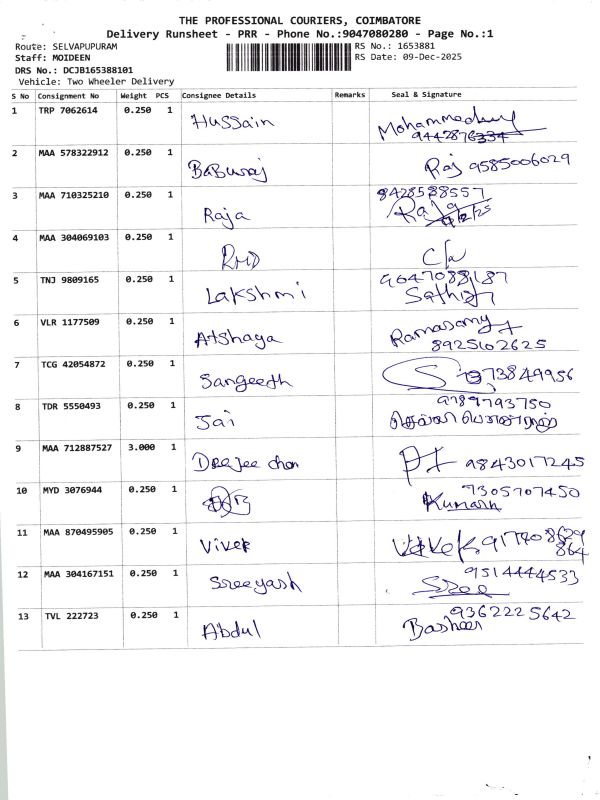 THE PROFESSIONAL COURIERS, COIMBATORE
Delivery Runsheet - PRR - Phone No.:9047080280 - Page No.:1
Route: SELVAPUPURAM
RS No.: 1653881
Staff: MOIDEEN
RS Date: 09-Dec-2025
DRS No.: DCJB165388101
Vehicle: Two Wheeler Delivery
S No Consignment No Weight PCS Consignee Details Remarks Seal & Signature
1 TRP 7062614 0.250 1 Hussain
2 MAA 578322912 0.250 1 BaBuraj Raj 9585006029
3 MAA 710325210 0.250 1 Raja 9428588557 Raja
4 MAA 304069103 0.250 1 RMD C/w
5 TNJ 9809165 0.250 1 Lakshmi 9047088187 Sathish
6 VLR 1177509 0.250 1 Atshaya Ramasamy 8925102625
7 TCG 42054872 0.250 1 Sangeeth
8 TDR 5550493 0.250 1 Jai 9789793750
9 MAA 712887527 3.000 1 DeeJee chon 9843017245
10 MYD 3076944 0.250 1 7305707450 Kumarn
11 MAA 870495905 0.250 1 Vivek Vivek
12 MAA 304167151 0.250 1 Sreeyash 9514444533 Sree
13 TVL 222723 0.250 1 Abdul 9362225642 Basheer